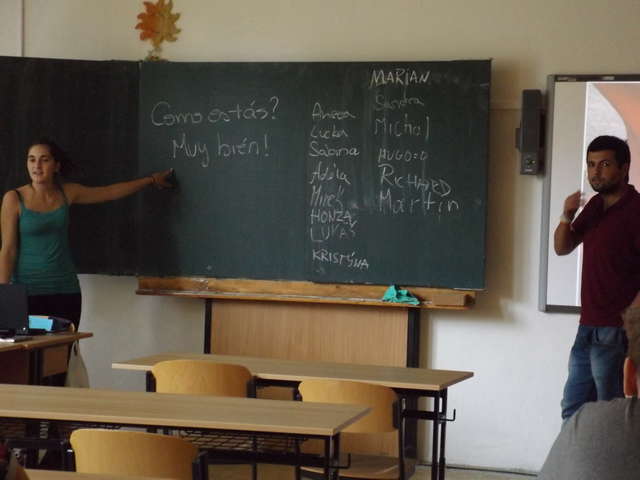 Como estás?
Muy bién!
Aneza
Lucka
Sabina
Adéla
Mirek
HONZA
LUKÁŠ
KRISTÝNA
MARIAN
Sandra
Michal
HUGO
RICHARD
Martin